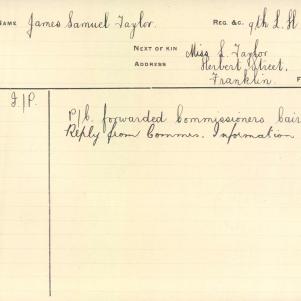 NAME James Samuel Taylor. REG. &C. 9th L.H.
NEXT OF KIN Miss L. Taylor
ADDRESS Herbert Street,
Franklin. F
I/P.
P/C. forwarded Commissioners Cair
Reply from Commrs. Information